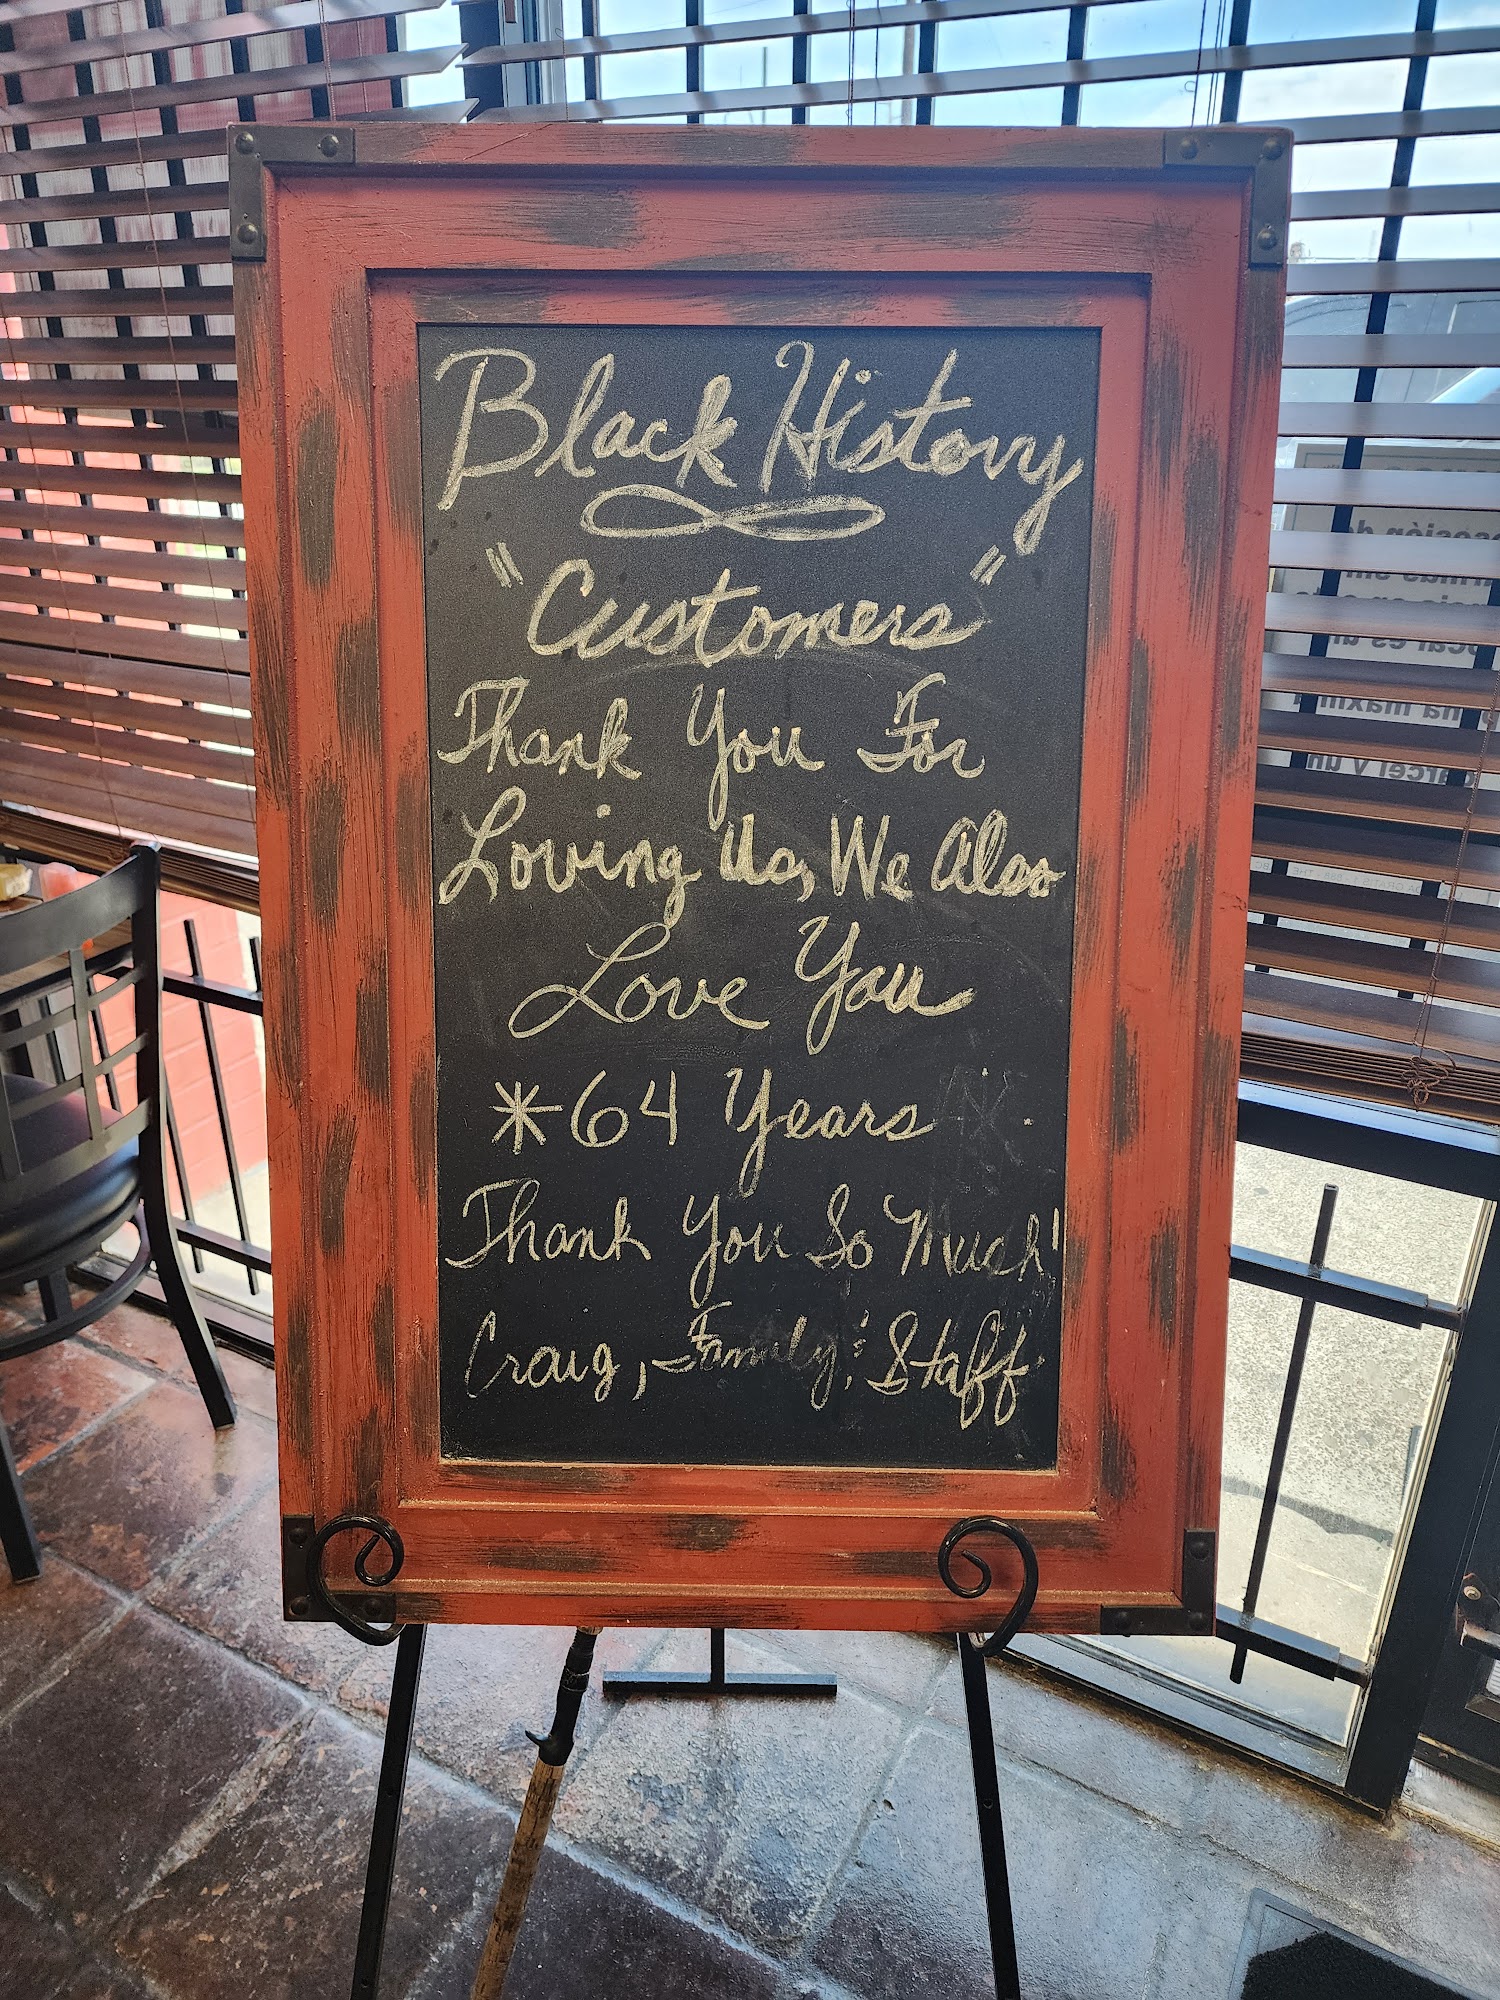 Black History
"Customers"
Thank You For
Loving Us, We Also
Love You
*64 Years
Thank You So Much!
Craig, Family, & Staff